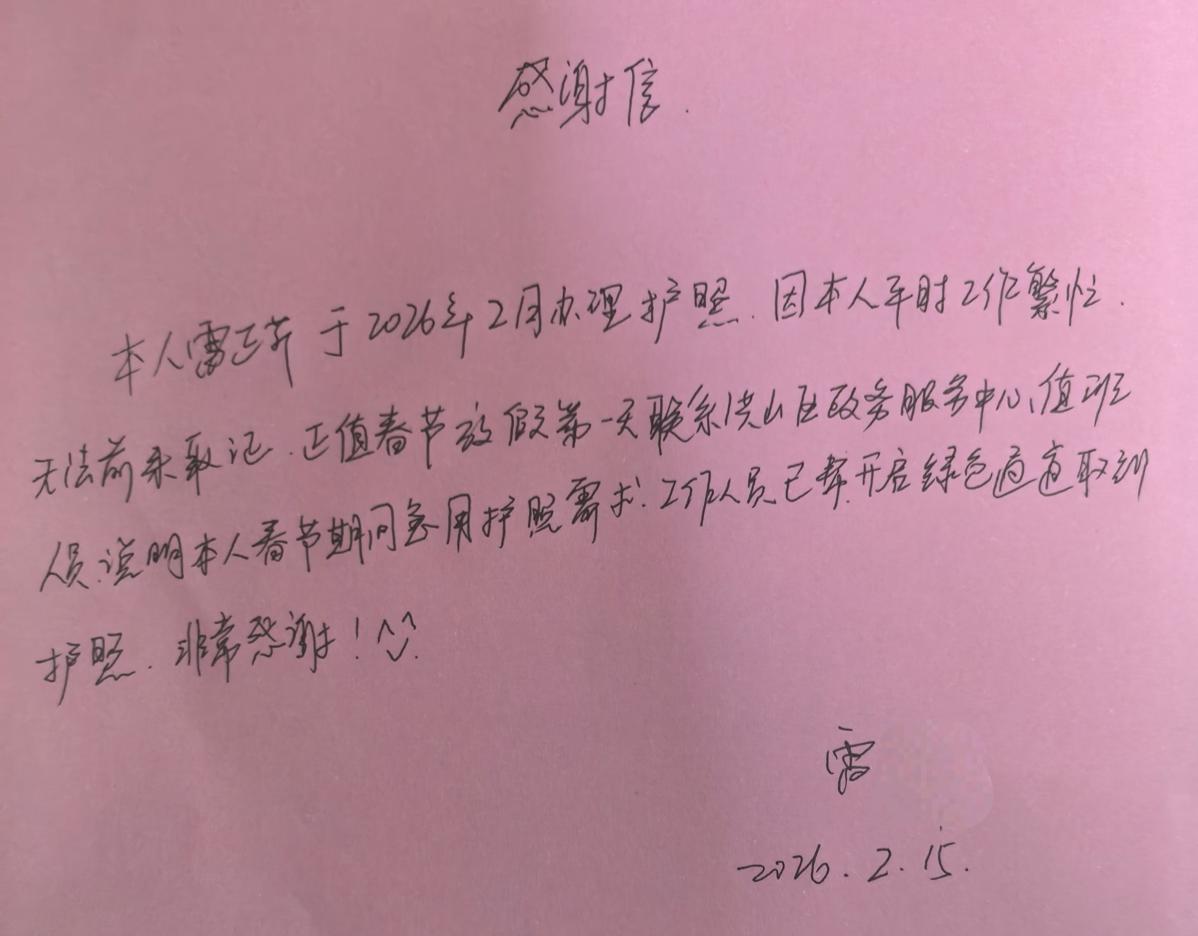 感谢信.
本人雷正芹于2026年2月办理护照.因本人平时工作繁忙.
无法前来取证.正值春节放假第一天联系洪山区政务服务中心、值班
人员.说明本人春节期间急用护照需求.工作人员已帮开启绿色通道取到
护照.非常感谢!^^
雷
2026.2.15.